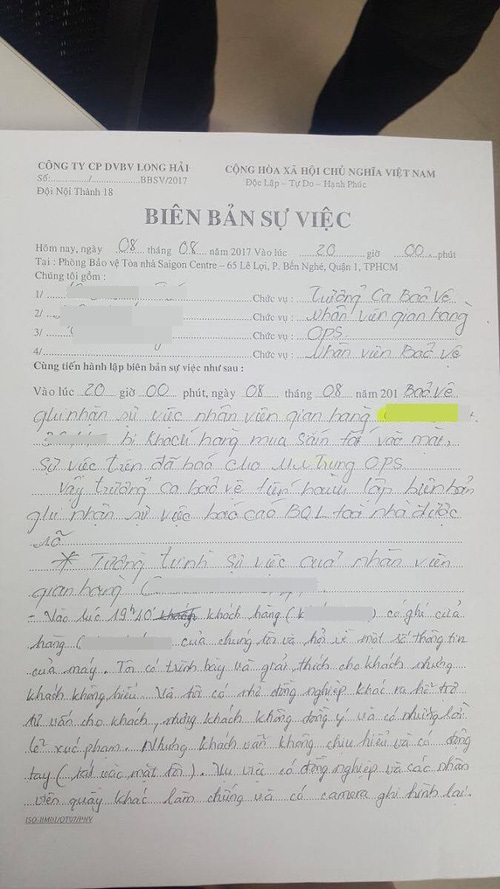 CÔNG TY CP DVBV LONG HẢI
CỘNG HÒA XÃ HỘI CHỦ NGHĨA VIỆT NAM
Số:............/..............BBSV/2017
Độc Lập – Tự Do – Hạnh Phúc
Đội Nội Thành 18
BIÊN BẢN SỰ VIỆC
Hôm nay, ngày 08 tháng 08 năm 2017 Vào lúc 20 giờ 00 phút
Tại : Phòng Bảo vệ Tòa nhà Saigon Centre – 65 Lê Lợi, P. Bến Nghé, Quận 1, TPHCM
Chúng tôi gồm :
1/ Chức vụ : Trưởng Ca Bảo Vệ
2/ Chức vụ : Nhân viên gian hàng
3/ Chức vụ : OPS
4/ Chức vụ : Nhân viên Bảo vệ
Cùng tiến hành lập biên bản sự việc như sau :
Vào lúc 20 giờ 00 phút, ngày 08 tháng 08 năm 201 Bảo vệ
ghi nhận sự việc nhân viên gian hàng
bị khách hàng mua sắm tát vào mặt,
sự việc trên đã báo cho Mr Trung OPS
Vậy trưởng ca bảo vệ tiến hành lập biên bản
ghi nhận sự việc báo cáo BQL toà nhà được
rõ
* Tường trình sự việc của nhân viên
gian hàng (
- Vào lúc 19h40 khách hàng (k ) có ghé cửa
hàng ( của chúng tôi và hỏi về một số thông tin
của máy. Tôi có trình bày và giải thích cho khách nhưng
khách không hiểu. Và tôi có nhờ đồng nghiệp khác ra hỗ trợ
tư vấn cho khách, nhưng khách không đồng ý và có những lời
lẽ xúc phạm. Nhưng khách vẫn không chịu hiểu và có động
tay (tát vào mặt tôi). Vụ việc có đồng nghiệp và các nhân
viên quầy khác làm chứng và có camera ghi hình lại.